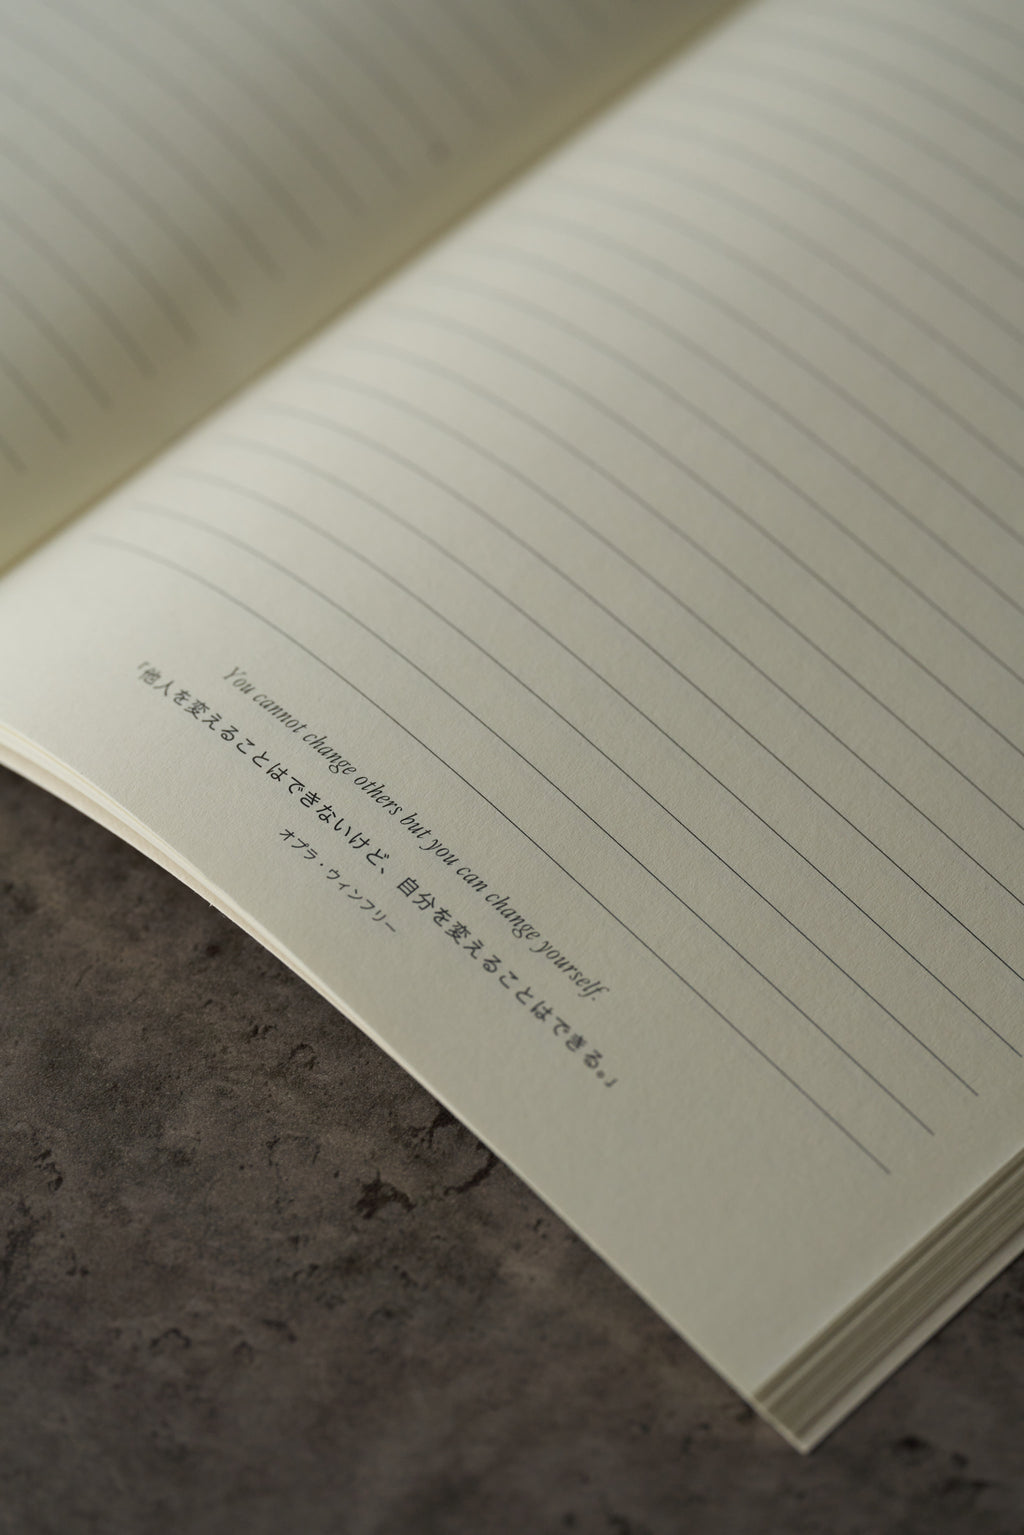 You cannot change others but you can change yourself.
「他人を変えることはできないけど、自分を変えることはできる。」
オプラ・ウィンフリー